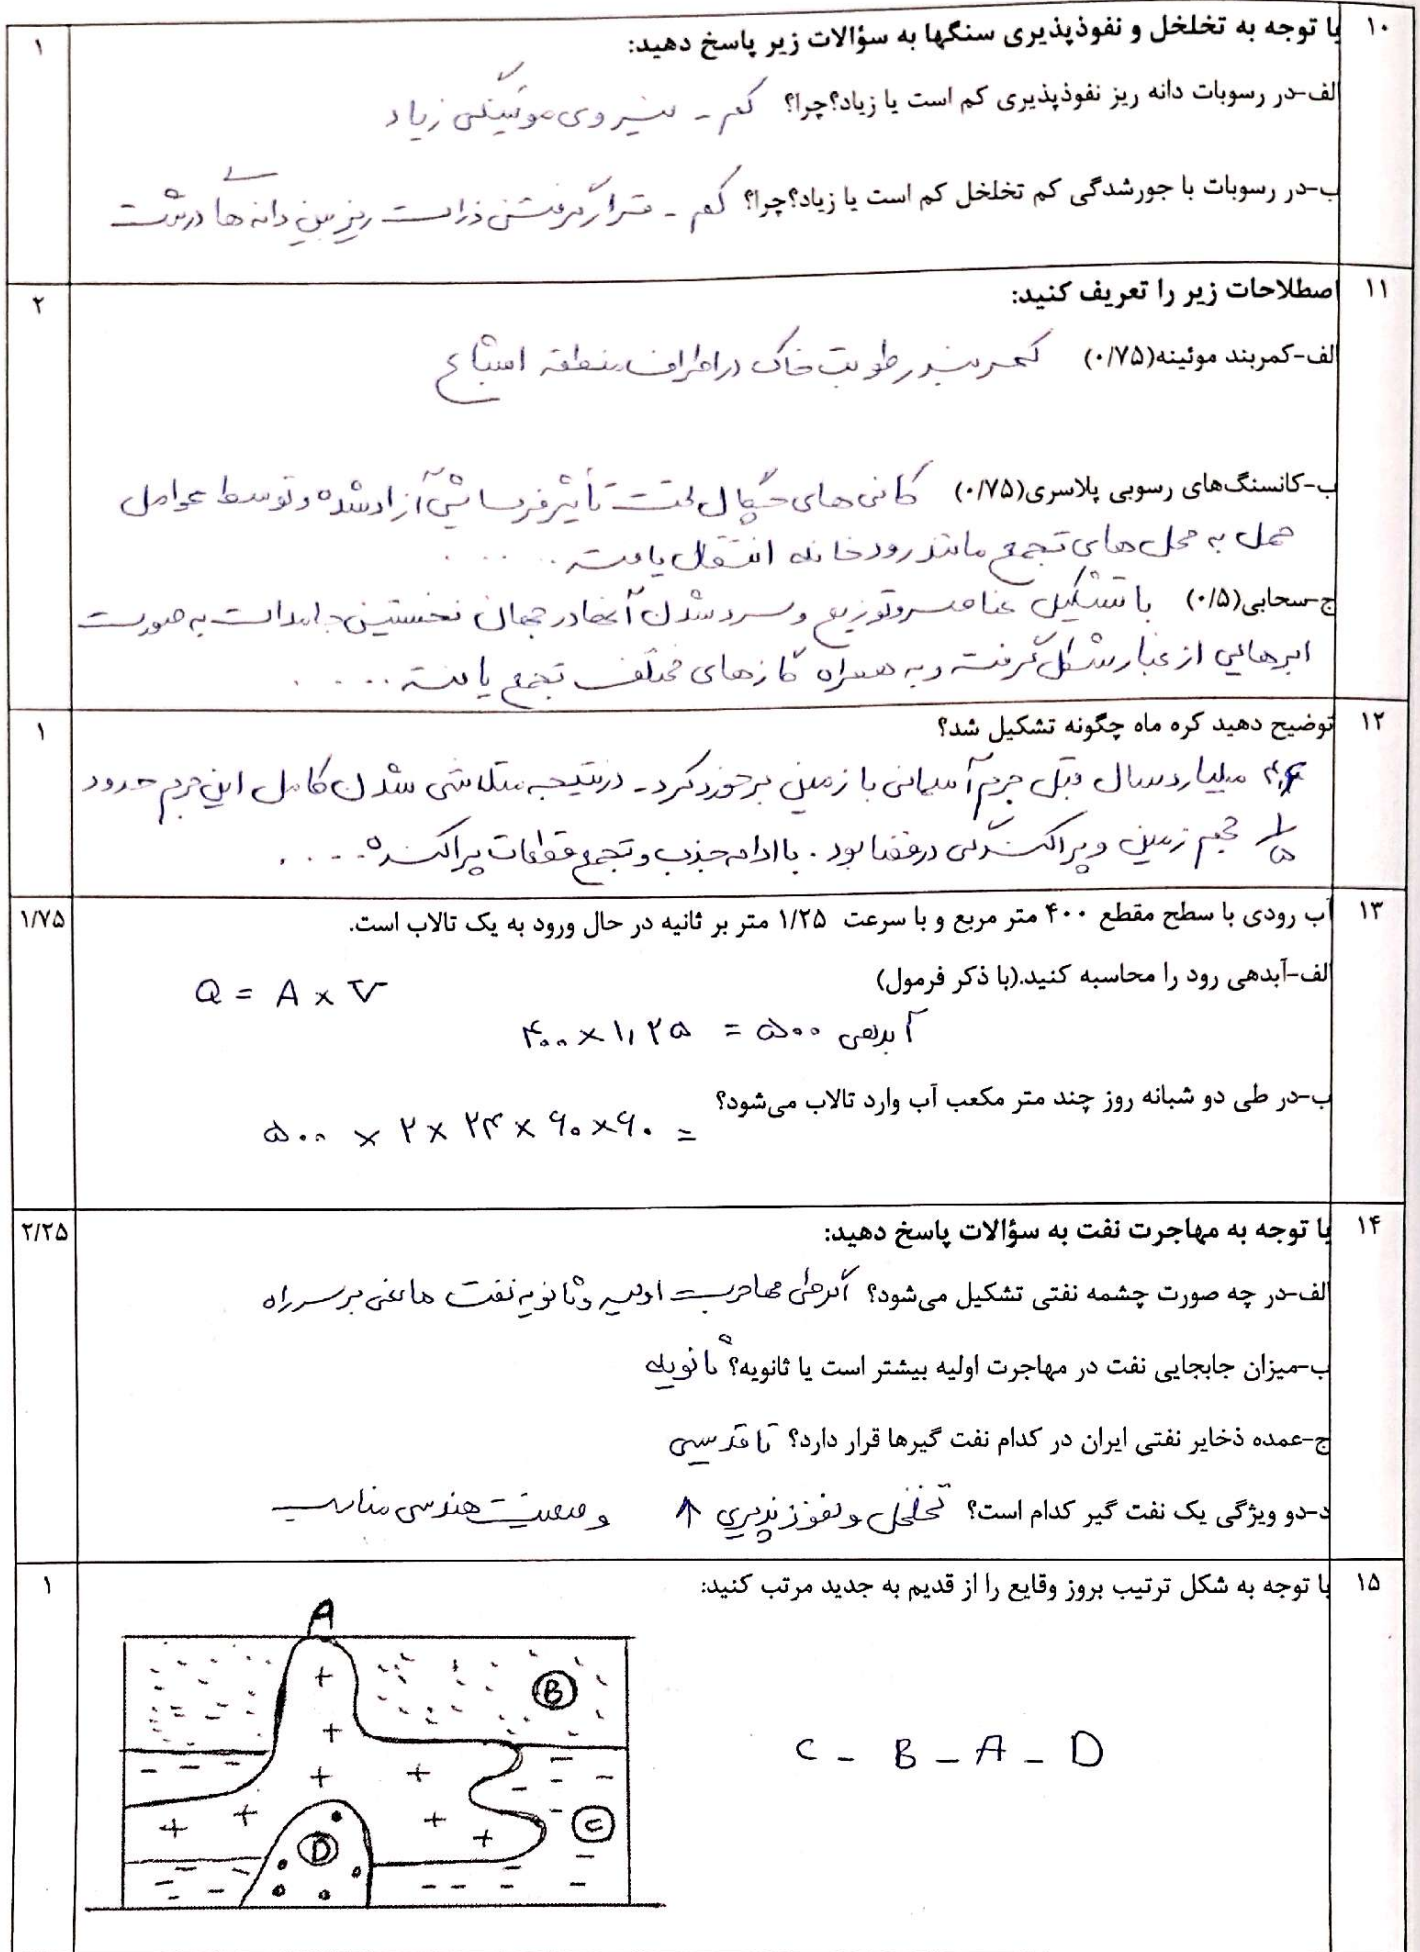 ۱۰ با توجه به تخلخل و نفوذپذیری سنگها به سؤالات زیر پاسخ دهید: ۱
الف-در رسوبات دانه ریز نفوذپذیری کم است یا زیاد؟چرا؟ کم - نیروی موئینگی زیاد
ب-در رسوبات با جورشدگی کم تخلخل کم است یا زیاد؟چرا؟ کم - قرار گرفتن ذرات ریز بین دانه ها درشت
۱۱ اصطلاحات زیر را تعریف کنید: ۲
الف-کمربند موئینه(۰/۷۵) کمربند رطوبت خاک در اطراف منطقه اشباع
ب-کانسنگ‌های رسوبی پلاسری(۰/۷۵) کانی های چگال تحت تأثیر فرسایش آزاد شده و توسط عوامل
حمل به محل های تجمع مانند رودخانه انتقال یافته . . . .
ج-سحابی(۰/۵) با تشکیل عناصر و توزیع و سرد شدن آنها در جهان نخستین جامدات به صورت
ابرهایی از غبار شکل گرفت و به همراه گازهای مختلف تجمع یافته . . . .
۱۲ توضیح دهید کره ماه چگونه تشکیل شد؟ ۱
میلیارد سال قبل جرم آسمانی با زمین برخورد کرد - در نتیجه متلاشی شدن کامل این جرم حدود
حجم زمین و پراکندگی در فضا بود . با ادامه جذب و تجمع قطعات پراکنده . . . .
۱۳ آب رودی با سطح مقطع ۴۰۰ متر مربع و با سرعت ۱/۲۵ متر بر ثانیه در حال ورود به یک تالاب است. ۱/۷۵
الف-آبدهی رود را محاسبه کنید.(با ذکر فرمول) Q = A × V
۴۰۰ × ۱,۲۵ = ۵۰۰ آبدهی
ب-در طی دو شبانه روز چند متر مکعب آب وارد تالاب می‌شود؟ ۵۰۰ × ۲ × ۲۴ × ۶۰ × ۶۰ =
۱۴ با توجه به مهاجرت نفت به سؤالات پاسخ دهید: ۲/۲۵
الف-در چه صورت چشمه نفتی تشکیل می‌شود؟ اگر طی مهاجرت اولیه و ثانویه نفت مانعی بر سر راه
ب-میزان جابجایی نفت در مهاجرت اولیه بیشتر است یا ثانویه؟ ثانویه
ج-عمده ذخایر نفتی ایران در کدام نفت گیرها قرار دارد؟ تاقدیسی
د-دو ویژگی یک نفت گیر کدام است؟ تخلخل و نفوذپذیری ↑ وضعیت هندسی مناسب
۱۵ با توجه به شکل ترتیب بروز وقایع را از قدیم به جدید مرتب کنید: ۱
A
B
C - B - A - D
C
D